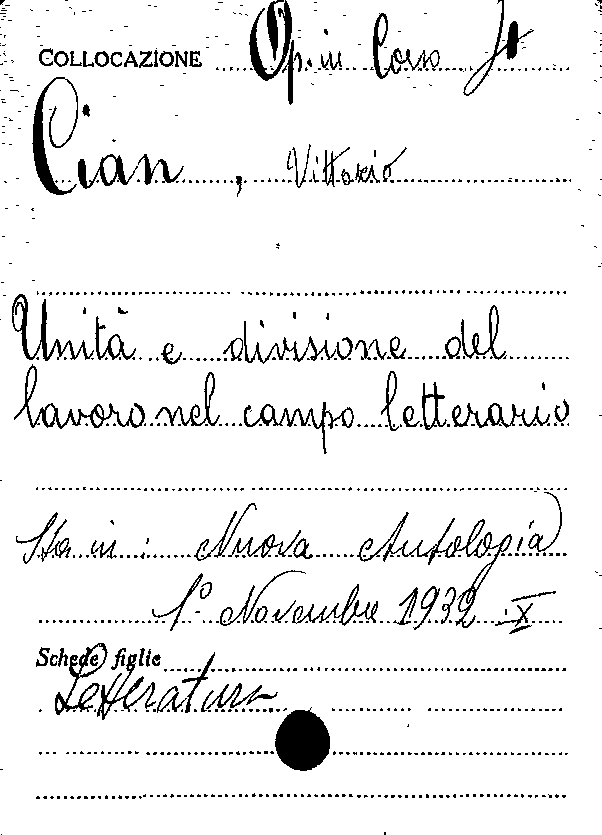 COLLOCAZIONE Op. in Corso
Cian, Vittorio
Unità e divisione del
lavoro nel campo letterario
Sta in: Nuova Antologia
1º Novembre 1932 X
Schede figlie
Letteratura